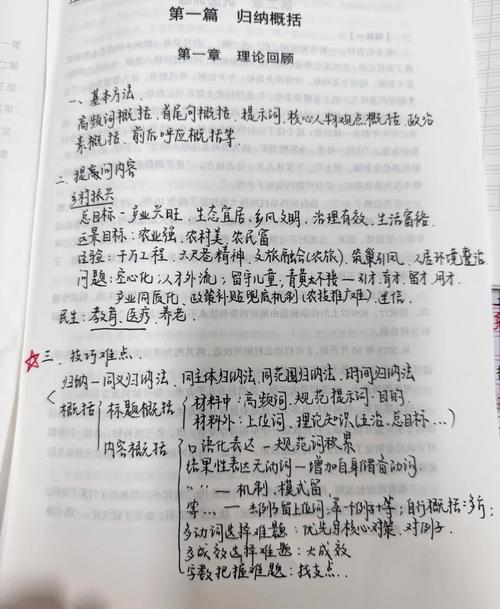 第一篇 归纳概括
第一章 理论回顾
一、基本方法
高频词概括、首尾句概括、提示词、核心人物观点概括、政治
素概括、前后呼应概括等.
二、提高问内容
乡村振兴
总目标－产业兴旺、生态宜居、乡风文明、治理有效、生活富裕
远景目标：农业强、农村美、农民富
经验：千万工程、文旅融合(农旅)、筑巢引凤、人居环境整治
问题：空心化；人才外流；留守儿童，青黄不接－引才.育才.留才.用才
产业同质化、政策补贴兜底机制(农技推广难)、迷信.
民生：教育、医疗、养老.
☆三、技巧难点.
归纳－同义归纳法、同主体归纳法、同范围归纳法、时间归纳法
概括 标题概括 材料中：高频词、规范提示词、目的.
材料外：上位词、理论知识(政治、总目标...)
内容概括 口语化表达－规范词效果
结果性表达无动词－增加自身隐含动词
〃 〃－机制、模式留
等...－去例留上位词；单一例子+等；自行概括
多动词选择难题：优先与核心对策、对例子.
多成效选择难题：大成效
字数把握难题：找支点.